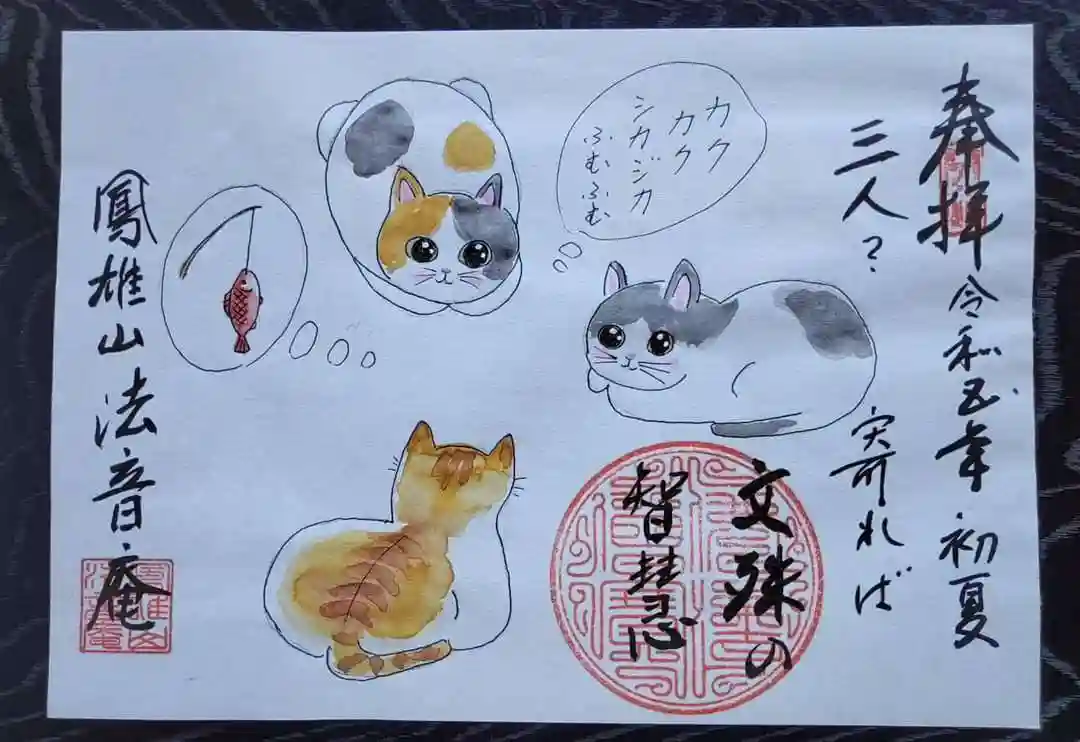 奉拝 令和五年 初夏
三人？ 寄れば
文殊の
智慧
カク
カク
シカジカ
ふむふむ
鳳雄山法音庵